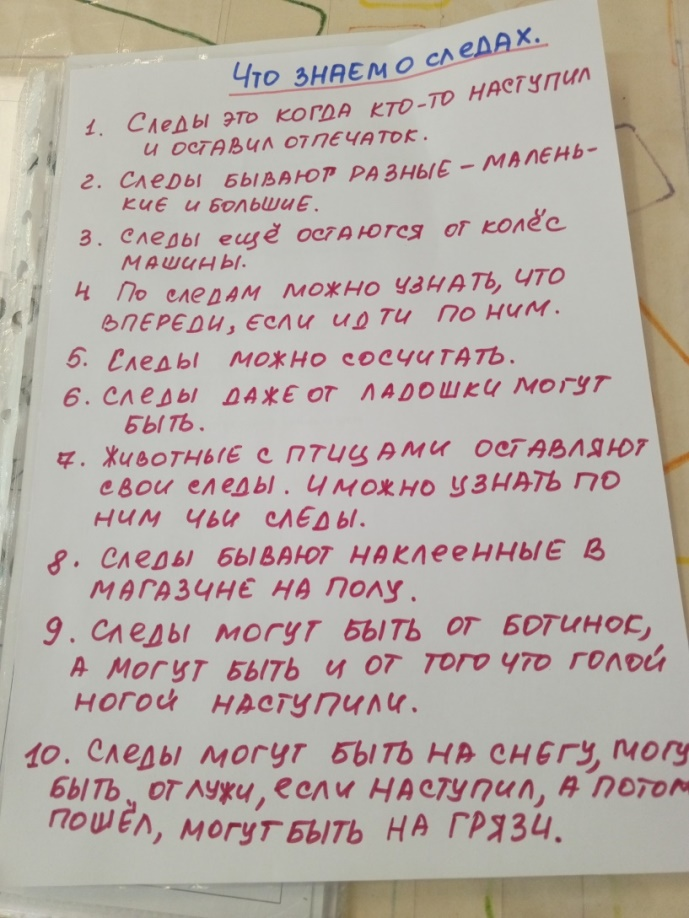 Что знаем о следах.
1. Следы это когда кто-то наступил
и оставил отпечаток.
2. Следы бывают разные – малень-
кие и большие.
3. Следы ещё остаются от колёс
машины.
4 По следам можно узнать, что
впереди, если идти по ним.
5. Следы можно сосчитать.
6. Следы даже от ладошки могут
быть.
7. Животные с птицами оставляют
свои следы. И можно узнать по
ним чьи следы.
8. Следы бывают наклеенные в
магазине на полу.
9. Следы могут быть от ботинок,
а могут быть и от того что голой
ногой наступили.
10. Следы могут быть на снегу, могу
быть от лужи, если наступил, а потом
пошёл, могут быть на грязи.